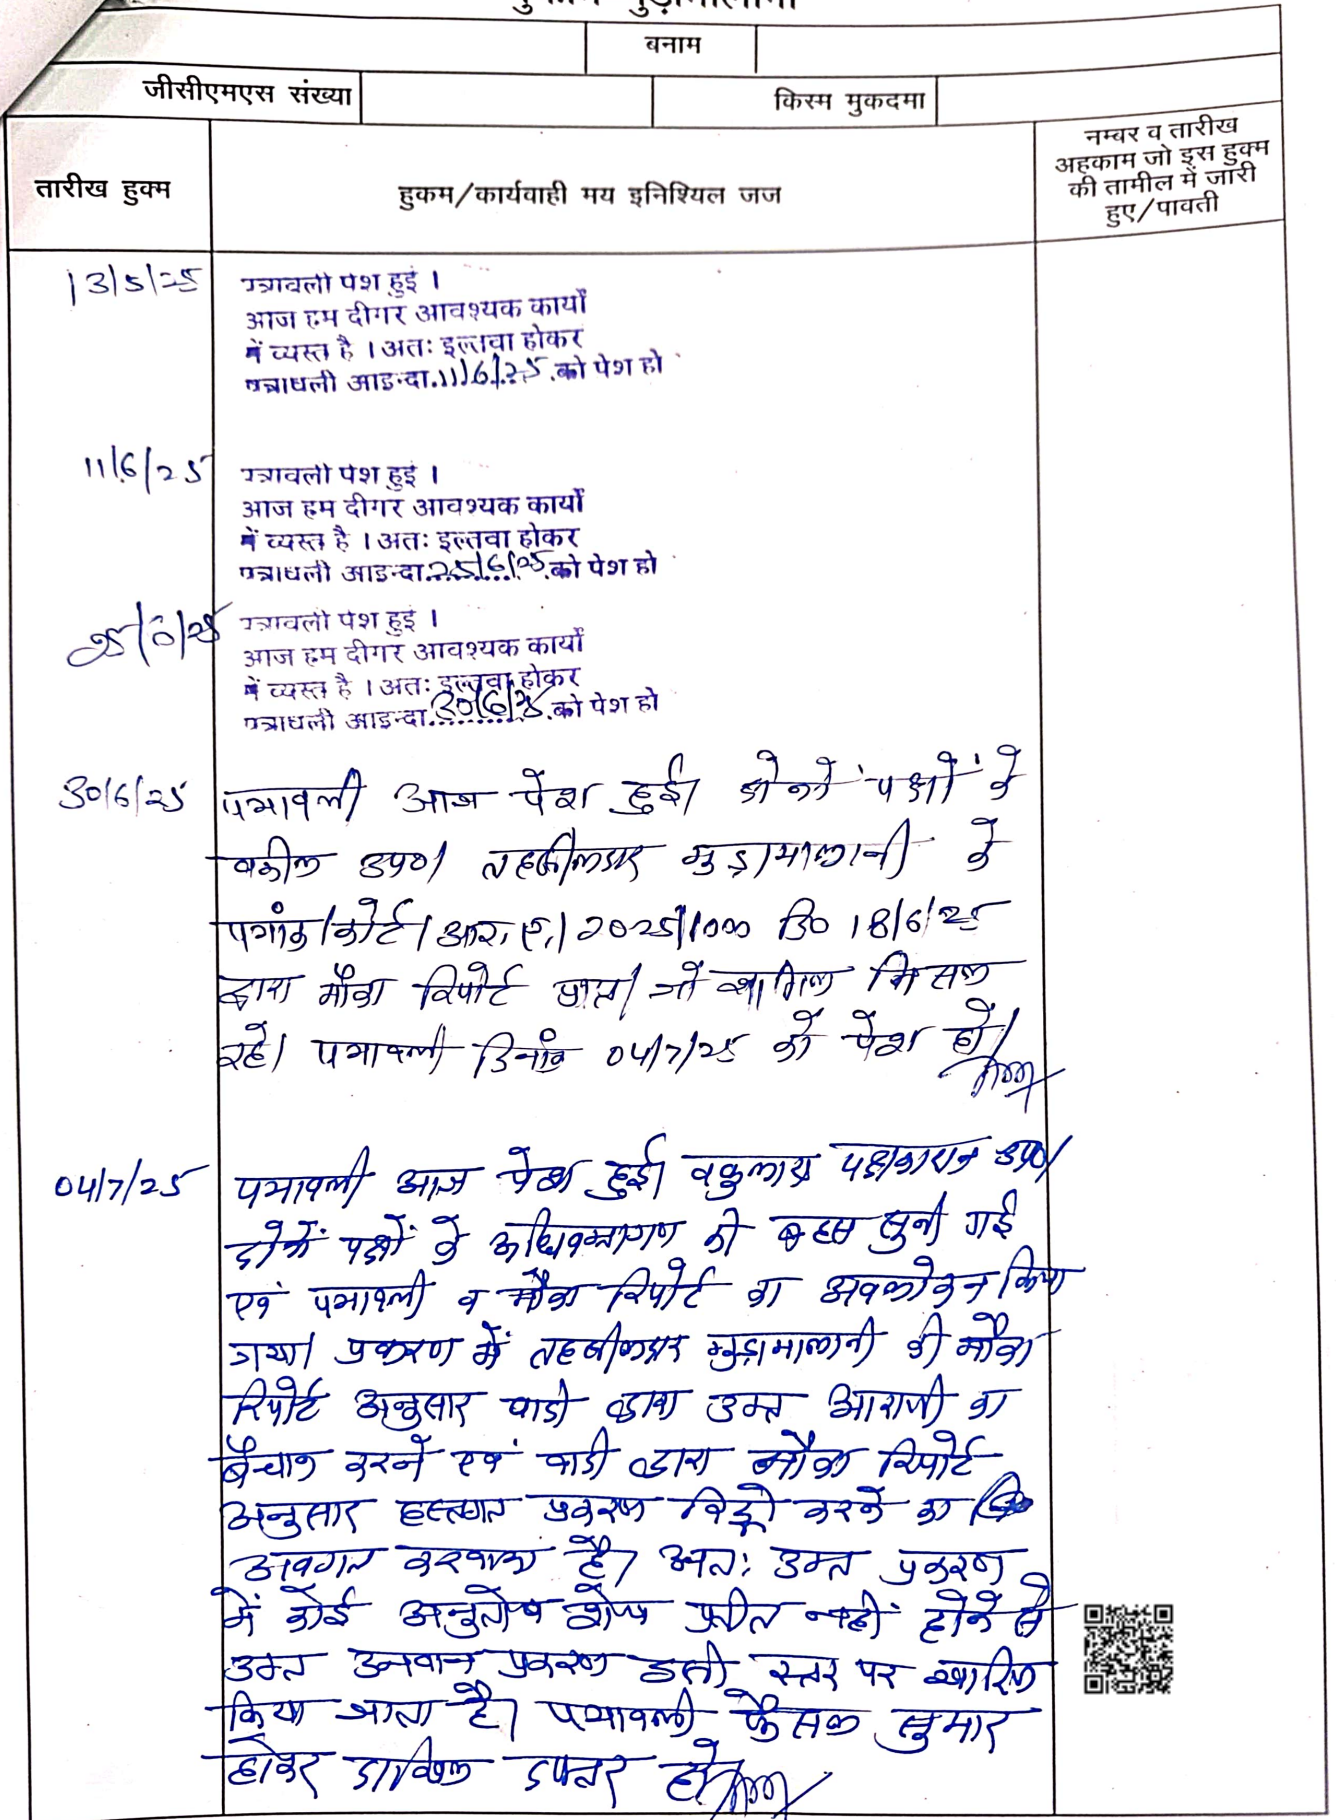 बनाम
जीसीएमएस संख्या
किस्म मुकदमा
तारीख हुक्म
हुकम/कार्यवाही मय इनिश्यिल जज
नम्बर व तारीख
अहकाम जो इस हुक्म
की तामील में जारी
हुए/पावती
13/5/25
पत्रावली पेश हुई ।
आज हम दीगर आवश्यक कार्यों
में व्यस्त है । अतः इल्तवा होकर
पत्रावली आइन्दा 11/6/25 को पेश हो
11/6/25
पत्रावली पेश हुई ।
आज हम दीगर आवश्यक कार्यों
में व्यस्त है । अतः इल्तवा होकर
पत्रावली आइन्दा 25/6/25 को पेश हो
25/6/25
पत्रावली पेश हुई ।
आज हम दीगर आवश्यक कार्यों
में व्यस्त है । अतः इल्तवा होकर
पत्रावली आइन्दा 30/6/25 को पेश हो
30/6/25
पत्रावली आज पेश हुई। दोनों पक्षों के
वकील उप०। तहसीलदार गुड़ामालानी के
पत्रांक/कोर्ट/आर.ए./2025/1000 दि० 18/6/25
द्वारा मौका रिपोर्ट प्राप्त। जो शामिल मिसल
रहे। पत्रावली दिनांक 04/7/25 को पेश हो।
04/7/25
पत्रावली आज पेश हुई। वकुलाय पक्षकारान उप०।
दोनों पक्षों के अधिवक्तागण की बहस सुनी गई
एवं पत्रावली व मौका रिपोर्ट का अवलोकन किया
गया। प्रकरण में तहसीलदार गुड़ामालानी की मौका
रिपोर्ट अनुसार वादी द्वारा उक्त आराजी का
बैचान करने एवं वादी द्वारा मौका रिपोर्ट
अनुसार हस्तगत प्रकरण विड्रो करने का
अवगत करवाया है। अतः उक्त प्रकरण
में कोई अनुतोष शेष प्रतीत नहीं होने से
उक्त उनवान प्रकरण इसी स्तर पर खारिज
किया जाता है। पत्रावली फैसल शुमार
होकर दाखिल दफ्तर हो।